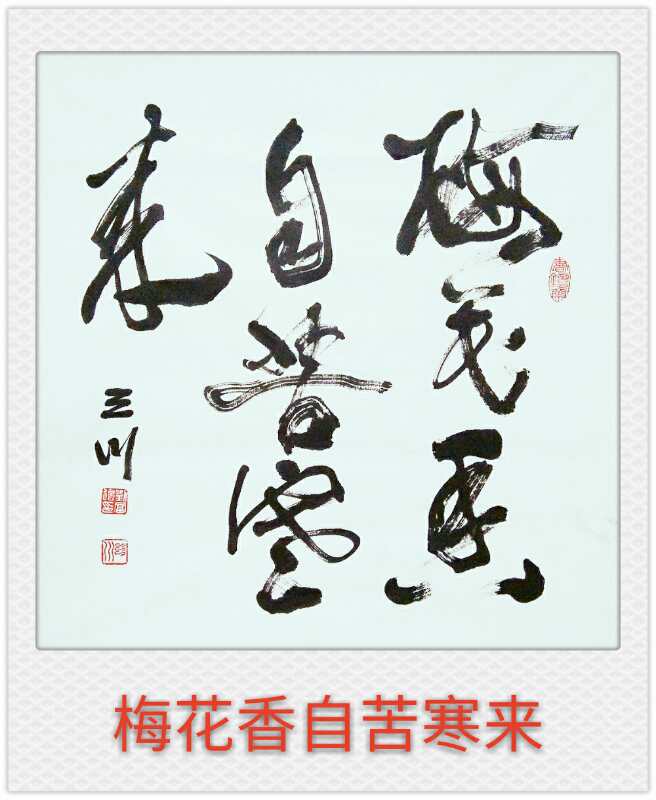 梅花香
自苦寒
来
三川
梅花香自苦寒来